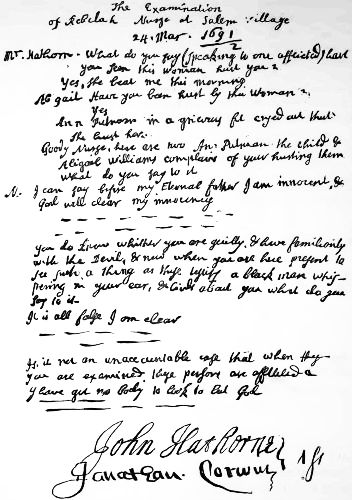 The Examination
of Rebekah Nurse at Salem Village
24. Mar. 1691/2
Mr. Hathorn. What do you say (speaking to one afflicted) have
you seen this woman hurt you?
Yes, she beat me this morning
Abigail Have you been hurt by this Woman?
Yes
Ann Putnam in a grievous fit cryed out that
she hurt her.
Goody Nurse, here are two An: Putnam the child &
Abigail Williams complains of your hurting them
what do you say to it
N. I can say before my Eternal father I am innocent, &
God will clear my innocency
You do know whither you are guilty, & have familiarity
with the Devil, & now when you are here present to
see such a thing as these testify a black man whis-
pering in your ear, & birds about you what do you
say to it
It is all false I am clear
Is it not an unaccountable case that when they
you are examined these persons are afflicted
I have got no body to look to but God
John Hathorne
Jonathan Corwin